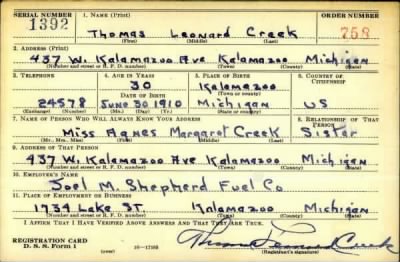 SERIAL NUMBER 1. NAME (Print) ORDER NUMBER
1392 Thomas Leonard Creek 758
(First) (Middle) (Last)
2. ADDRESS (Print)
437 W. Kalamazoo Ave Kalamazoo Michigan
(Number and street or R. F. D. number) (Town) (County) (State)
3. TELEPHONE 4. AGE IN YEARS 5. PLACE OF BIRTH 6. COUNTRY OF CITIZENSHIP
30 Kalamazoo
DATE OF BIRTH (Town or county)
24578 June 30 1910 Michigan US
(Exchange) (Number) (Mo.) (Day) (Yr.) (State or country)
7. NAME OF PERSON WHO WILL ALWAYS KNOW YOUR ADDRESS 8. RELATIONSHIP OF THAT PERSON
Miss Agnes Margaret Creek Sister
(Mr., Mrs., Miss) (First) (Middle) (Last)
9. ADDRESS OF THAT PERSON
437 W. Kalamazoo Ave Kalamazoo Michigan
(Number and street or R. F. D. number) (Town) (County) (State)
10. EMPLOYER'S NAME
Joel M. Shepherd Fuel Co
11. PLACE OF EMPLOYMENT OR BUSINESS
1734 Lake St. Kalamazoo Michigan
(Number and street or R. F. D. number) (Town) (County) (State)
I AFFIRM THAT I HAVE VERIFIED ABOVE ANSWERS AND THAT THEY ARE TRUE.
REGISTRATION CARD Thomas Leonard Creek
D. S. S. Form 1 16-17105 (Registrant's signature)